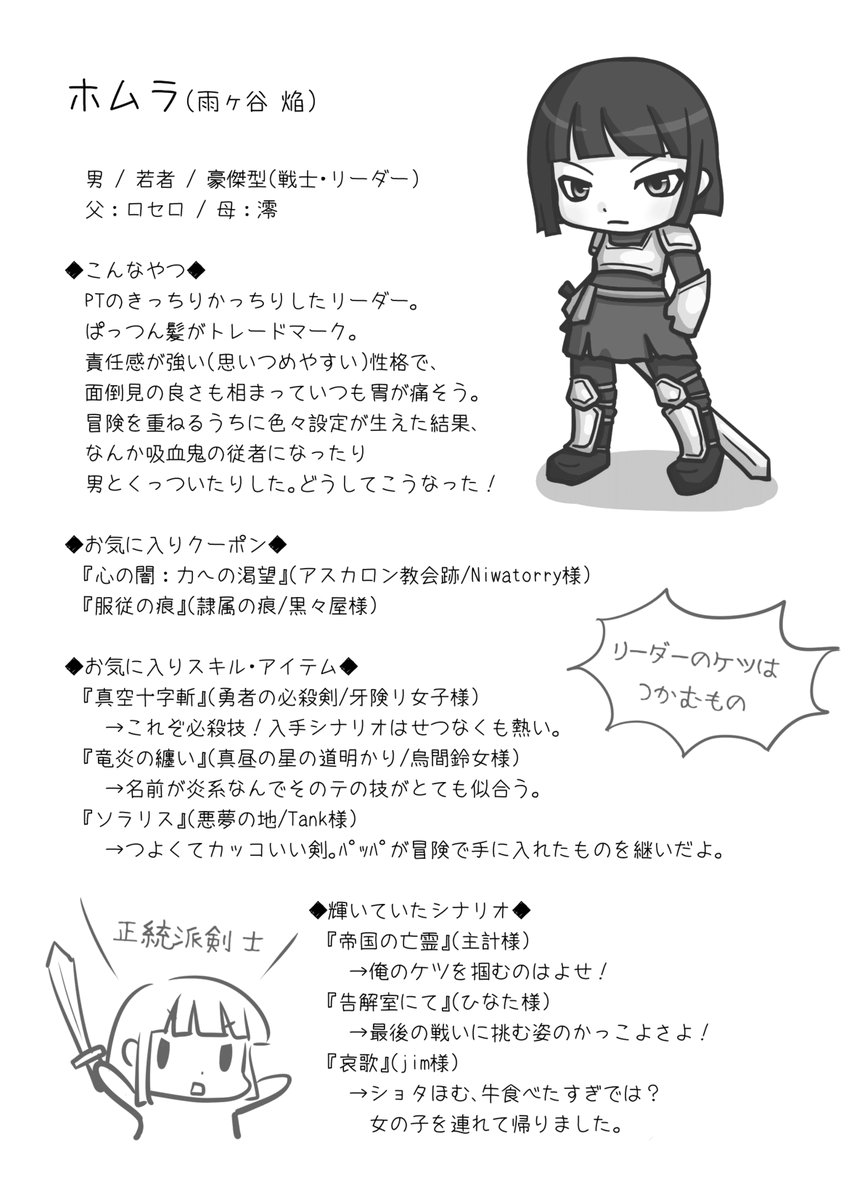 ホムラ(雨ヶ谷 焔)
男 / 若者 / 豪傑型(戦士・リーダー)
父：ロセロ / 母：澪
◆こんなやつ◆
PTのきっちりかっちりしたリーダー。
ぱっつん髪がトレードマーク。
責任感が強い(思いつめやすい)性格で、
面倒見の良さも相まっていつも胃が痛そう。
冒険を重ねるうちに色々設定が生えた結果、
なんか吸血鬼の従者になったり
男とくっついたりした。どうしてこうなった！
◆お気に入りクーポン◆
『心の闇：力への渇望』(アスカロン教会跡/Niwatorry様)
『服従の痕』(隷属の痕/黒々屋様)
リーダーのケツは
つかむもの
◆お気に入りスキル・アイテム◆
『真空十字斬』(勇者の必殺剣/牙険リ女子様)
→これぞ必殺技！入手シナリオはせつなくも熱い。
『竜炎の纏い』(真昼の星の道明かり/烏間鈴女様)
→名前が炎系なんでそのテの技がとても似合う。
『ソラリス』(悪夢の地/Tank様)
→つよくてカッコいい剣。ﾊﾟｯﾊﾟが冒険で手に入れたものを継いだよ。
正統派剣士
◆輝いていたシナリオ◆
『帝国の亡霊』(主計様)
→俺のケツを掴むのはよせ！
『告解室にて』(ひなた様)
→最後の戦いに挑む姿のかっこよさよ！
『哀歌』(jim様)
→ショタほむ、牛食べたすぎでは？
女の子を連れて帰りました。